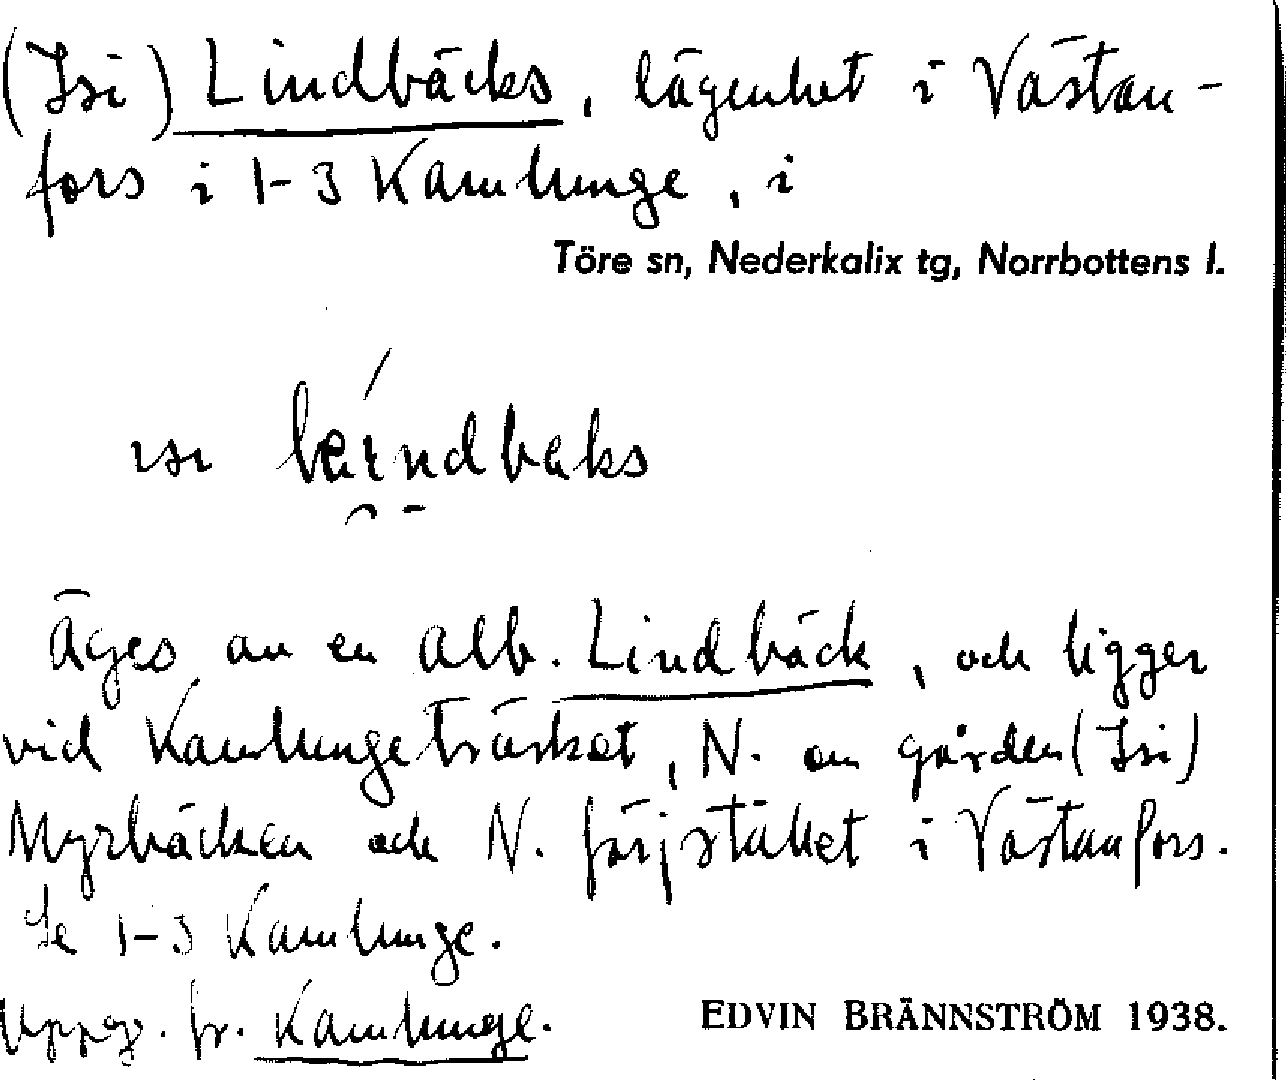 (Isi) Lindbäcks, lägenhet i Västan-
fors i 1-3 Kamlunge, i
Töre sn, Nederkalix tg, Norrbottens l.
ɪsɪ
Äges av en Alb. Lindbäck, och ligger
vid Kamlungeträsket, N. om gården (Isi)
Myrbäcken och N. färjstället i Västanfors.
Se 1-3 Kamlunge.
Uppg. fr. Kamlunge.
EDVIN BRÄNNSTRÖM 1938.